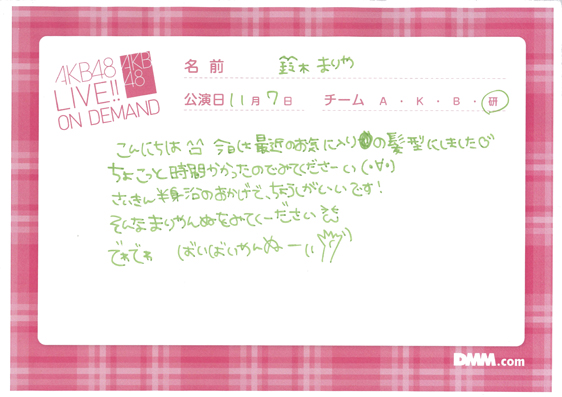 AKB48
LIVE!!
ON DEMAND
AKB
48
名前 鈴木まりや
公演日 11月7日 チーム A・K・B・研
こんにちは 今日は最近のお気に入りの髪型にしました
ちょこっと時間かかったのでみてくださーい(・∀・)
さいきん半身浴のおかげで、ちょうしがいいです!
そんなまりやんぬをみてくーださい
でわでわ ばいばいやんぬーい
DMM.com